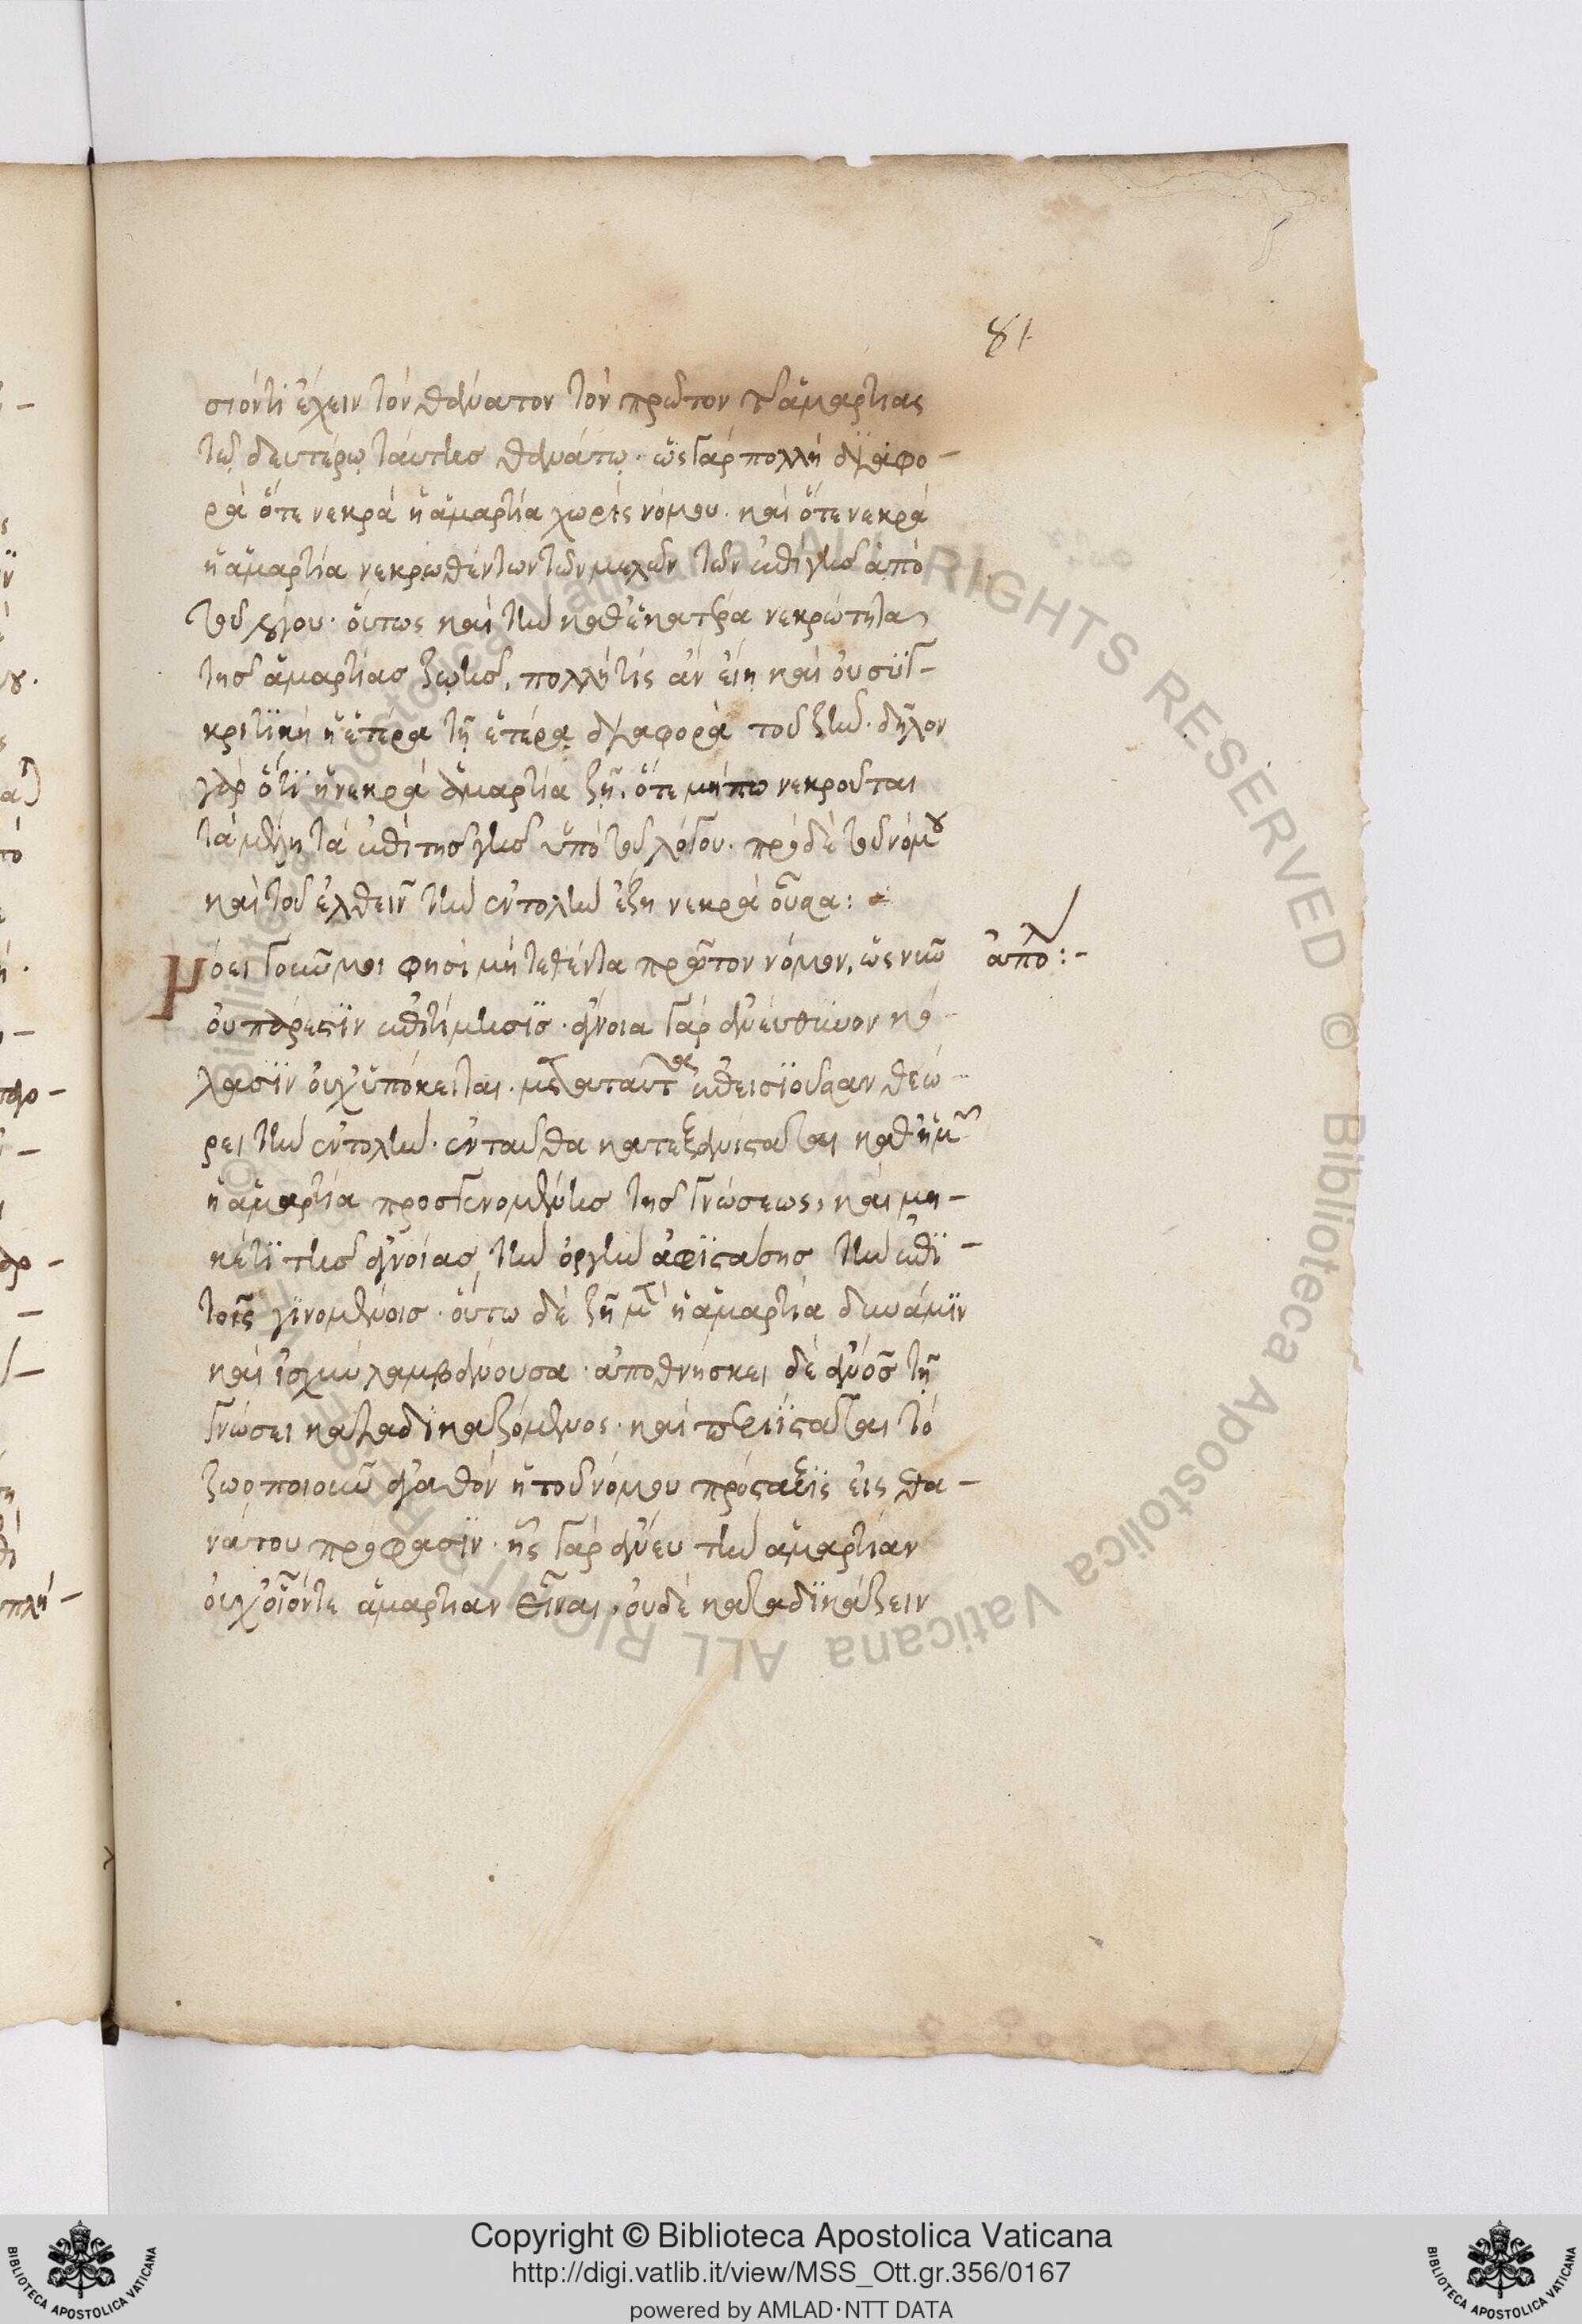 81
σιόντι ἔχειν τὸν θάνατον τὸν πρῶτον τ ἁμαρτίας
τῷ δευτέρῳ ταύτης θανάτῳ· ὡς γὰρ πολλὴ διαφο-
ρὰ ὅτε νεκρὰ ἡ ἁμαρτία χωρὶς νόμου· καὶ ὅτε νεκρὰ
ἡ ἁμαρτία νεκρωθέντων τῶν μελῶν τῶν ἐπὶ γῆς ἀπὸ
τοῦ λόγου· οὕτως καὶ τὴν καθ ἑκατέρα νεκρότητα
τῆς ἁμαρτίας ζωῆς, πολλή τις ἂν εἴη καὶ οὐ συγ-
κριτικὴ ἡ ἑτέρα τῇ ἑτέρᾳ διαφορὰ τοῦ ζῆν· δῆλον
γὰρ ὅτι ἡ νεκρὰ ἁμαρτία ζῇ, ὅτε μήπω νεκροῦται
τὰ μέλη τὰ ἐπὶ τῆς γῆς ὑπὸ τοῦ λόγου· πρὸ δὲ τοῦ νόμου
καὶ τοῦ ἐλθεῖν τὴν ἐντολὴν ἔζη νεκρὰ οὖσα:
Νόει γοῦν μοι φησὶ μὴ τεθέντα πρῶτον νόμον, ὡς νῦν
ἀπολ:-
οὐ πάρεστιν ἐπιτίμησις· ἄνοια γὰρ ἀνεύθυνον κό-
λασιν οὐχ ὑπόκειται· μετὰ ταῦτα ἐπεισιοῦσαν θεώ-
ρει τὴν ἐντολήν· ἐνταῦθα κατεξανίσταται καθ ἡμῶν
ἡ ἁμαρτία προσγενομένης τῆς γνώσεως, καὶ μη-
κέτι τῆς ἀνοίας τὴν ὀργὴν ἀφιστάσης τὴν ἐπὶ
τοῖς γινομένοις· οὕτω δὲ ζῇ μὲν ἡ ἁμαρτία δύναμιν
καὶ ἰσχὺν λαμβάνουσα· ἀποθνήσκει δὲ ἄνος τῇ
γνώσει καταδικαζόμενος· καὶ περιίσταται τὸ
ζωοποιοῦν ἀγαθὸν ἡ τοῦ νόμου πρόσταξις εἰς θα-
νάτου πρόφασιν· ἧς γὰρ ἄνευ τὴν ἁμαρτίαν
οὐχ οἷόν τε ἁμαρτίαν εἶναι, οὐδὲ καταδικάζειν
Copyright © Biblioteca Apostolica Vaticana
http://digi.vatlib.it/view/MSS_Ott.gr.356/0167
powered by AMLAD·NTT DATA